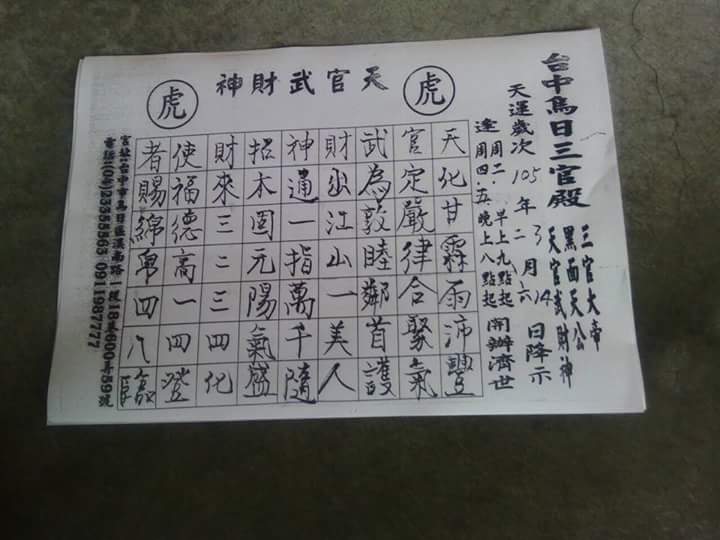 台中烏日三官殿
三官大帝
黑面天公
天官武財神
天運歲次105年二3月六14日降示
逢周二.早上九點起
周四.五晚上八點起
開辦濟世
虎 天官武財神 虎
天化甘霖雨沛豐
官定嚴律合聚氣
武為敦睦鄰首護
財出江山一美人
神通一指萬千隨
招本固元陽氣盛
財來三二三四化
使福德高一四澄
者賜綿帛四八
宮址:台中市烏日區溪南路一段18巷600弄59號
電話:(04)23355563 0911987777